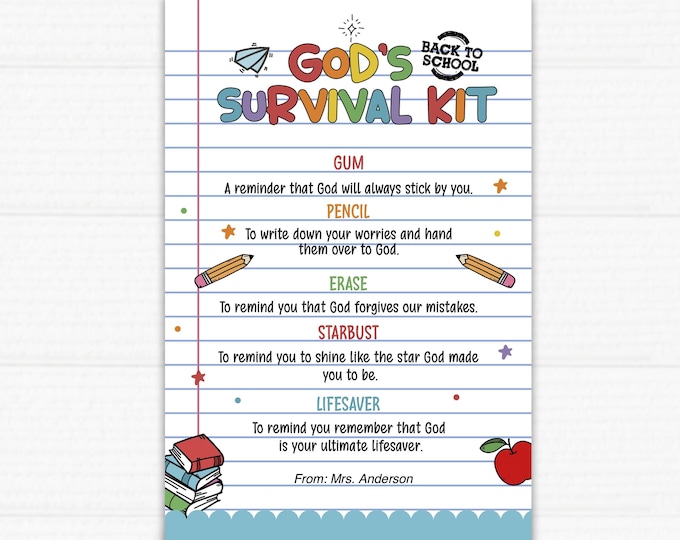 GOD'S
BACK TO
SCHOOL
SURVIVAL KIT
GUM
A reminder that God will always stick by you.
PENCIL
To write down your worries and hand
them over to God.
ERASE
To remind you that God forgives our mistakes.
STARBUST
To remind you to shine like the star God made
you to be.
LIFESAVER
To remind you remember that God
is your ultimate lifesaver.
From: Mrs. Anderson